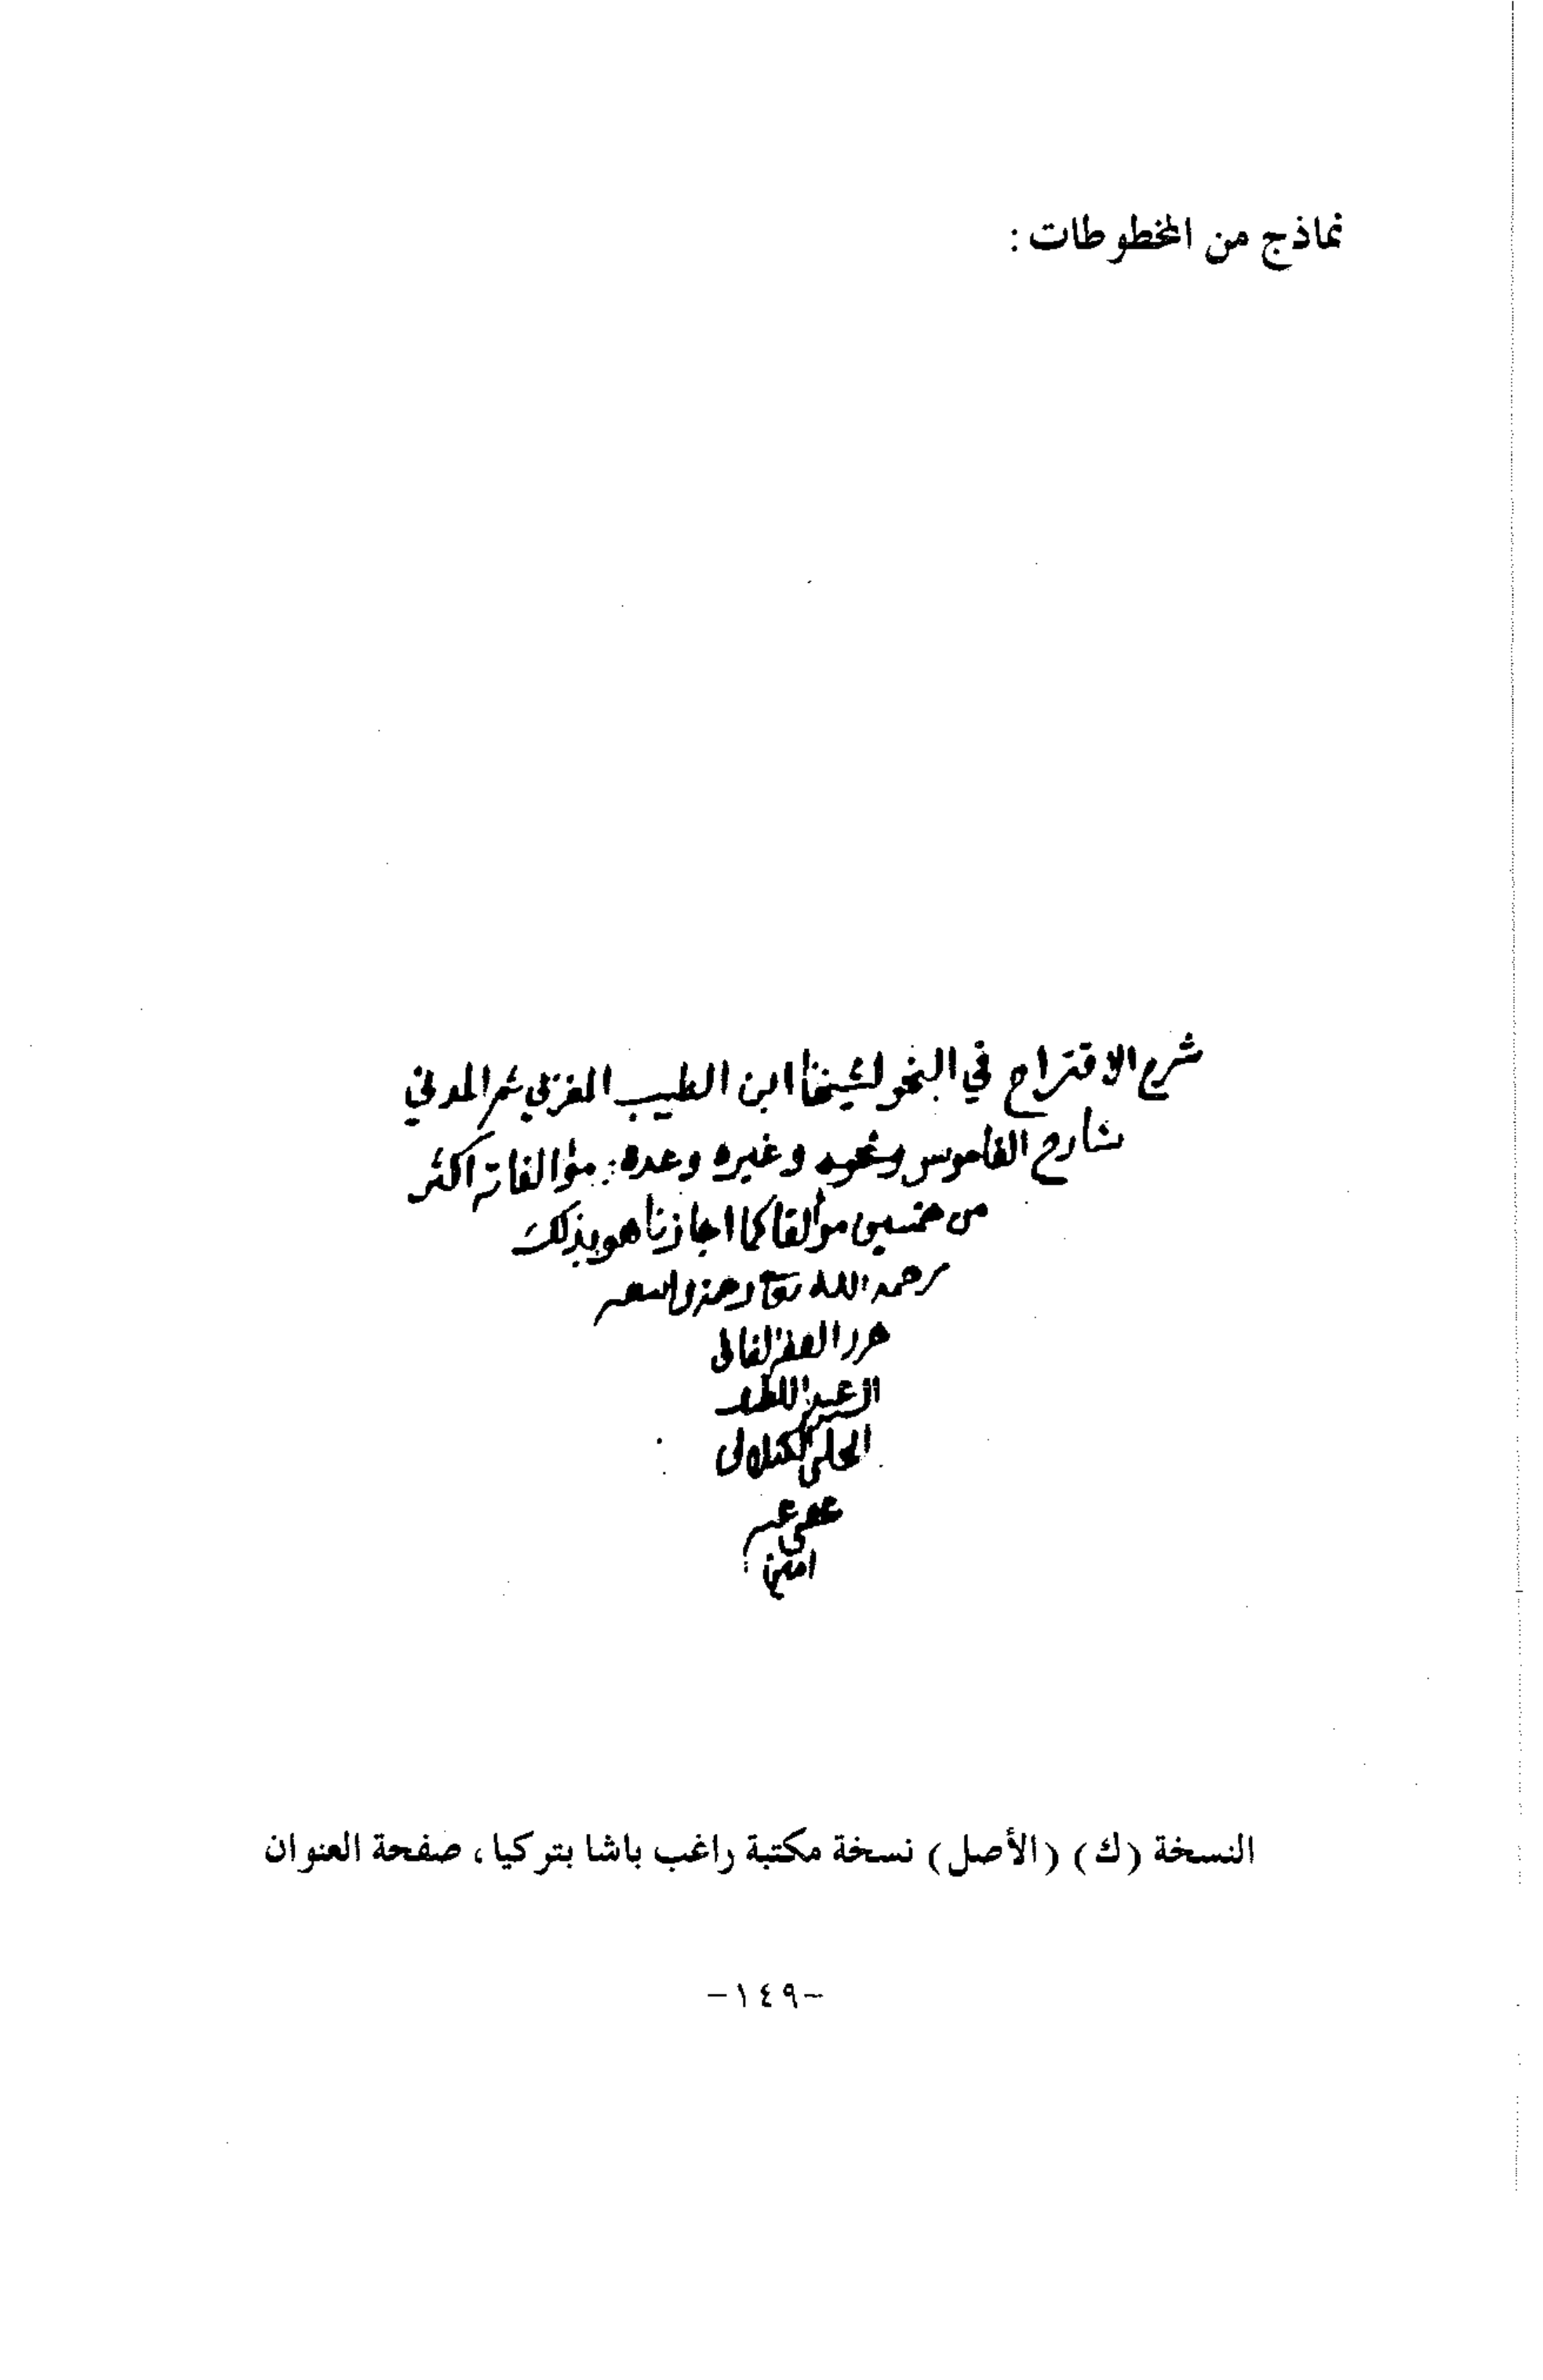 نماذج من المخطوطات :
شرح الاقتراح في النحو لشيخنا ابن الطيب المغربي ثم المدني
شارح القاموس ونحوه وغيره وعدة مؤالفاته اكثر
من خمسين مؤالفا كما اجازنا هو بذلك
رحمه الله تع
حرره الفقير الفاني
الحلبي
عفي عنه
امين
النسخة (ك) (الأصل) نسخة مكتبة راغب باشا بتركيا، صفحة العنوان
-١٤٩-